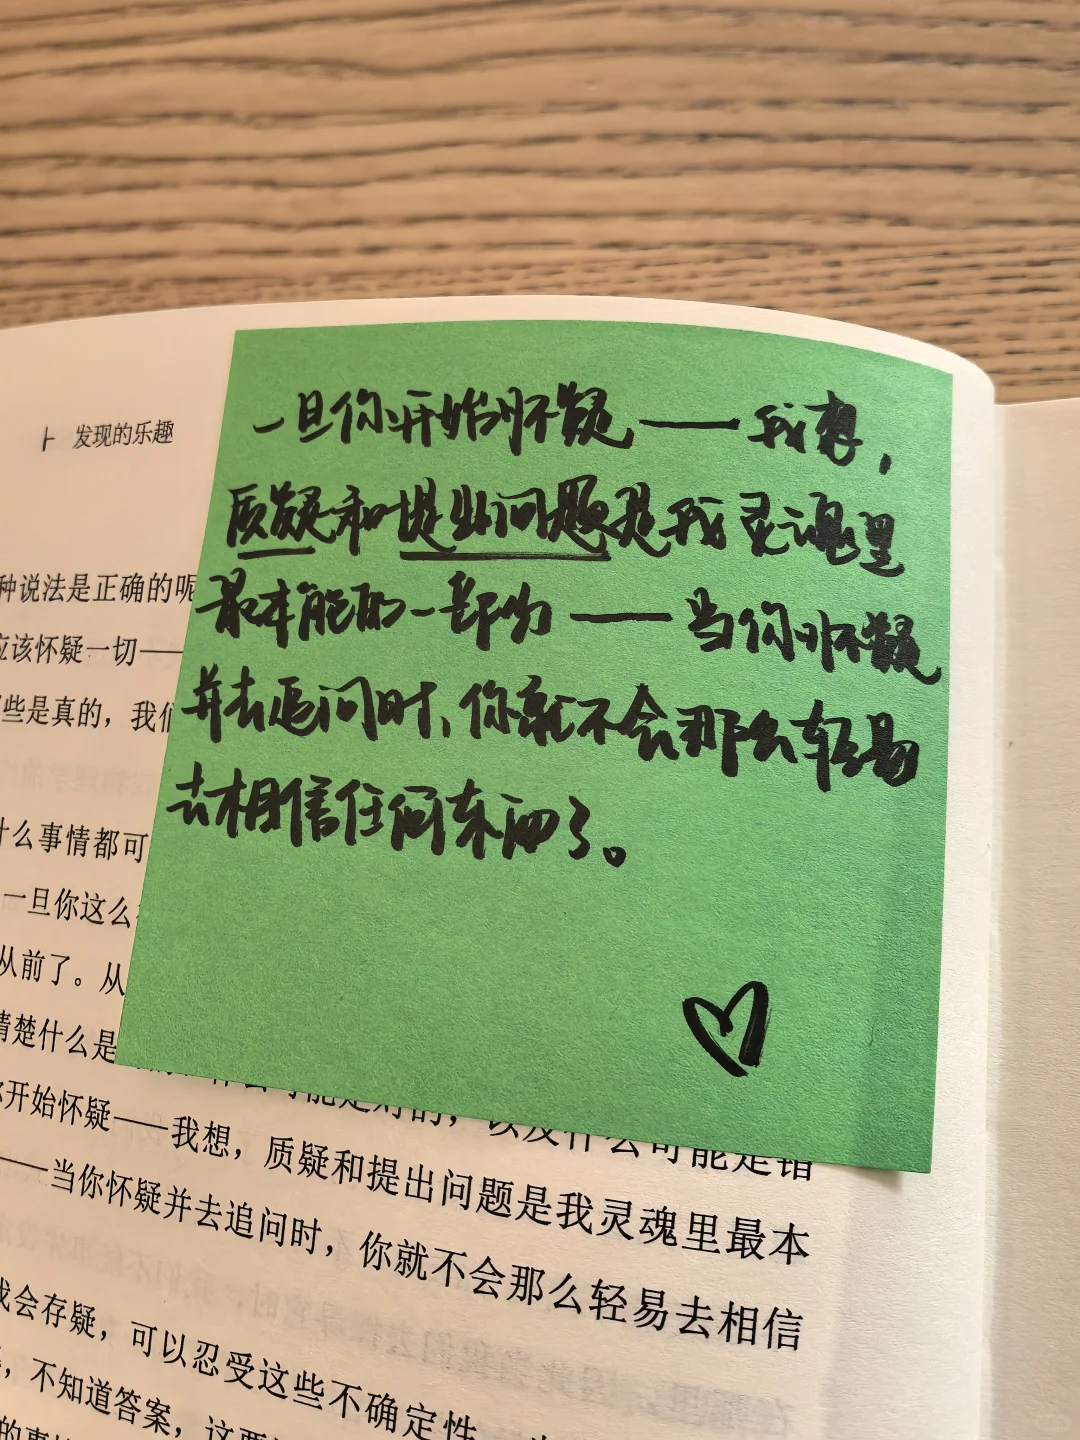 发现的乐趣
一旦你开始怀疑——我想，
质疑和提出问题是我灵魂里
最本能的一部份——当你怀疑
并去追问时、你就不会那么轻易
去相信任何东西了。
种说法是正确的呢
应该怀疑一切——
些是真的，我们
什么事情都可
一旦你这么
从前了。从
清楚什么是
能是对的，以及什么可能是错
你开始怀疑——我想，质疑和提出问题是我灵魂里最本
——当你怀疑并去追问时，你就不会那么轻易去相信
我会存疑，可以忍受这些不确定性
，不知道答案，这两